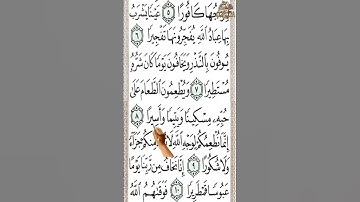 كَافُورًا ٥ عَيْنًا يَشْرَبُ
بِهَا عِبَادُ ٱللَّهِ يُفَجِّرُونَهَا تَفْجِيرًا ٦
يُوفُونَ بِٱلنَّذْرِ وَيَخَافُونَ يَوْمًا كَانَ شَرُّهُۥ
مُسْتَطِيرًا ٧ وَيُطْعِمُونَ ٱلطَّعَامَ عَلَىٰ
حُبِّهِۦ مِسْكِينًا وَيَتِيمًا وَأَسِيرًا ٨
إِنَّمَا نُطْعِمُكُمْ لِوَجْهِ ٱللَّهِ لَا مِنكُمْ جَزَآءً
وَلَا شُكُورًا ٩ إِنَّا نَخَافُ مِن رَّبِّنَا يَوْمًا
عَبُوسًا قَمْطَرِيرًا ١٠ فَوَقَىٰهُمُ ٱللَّهُ